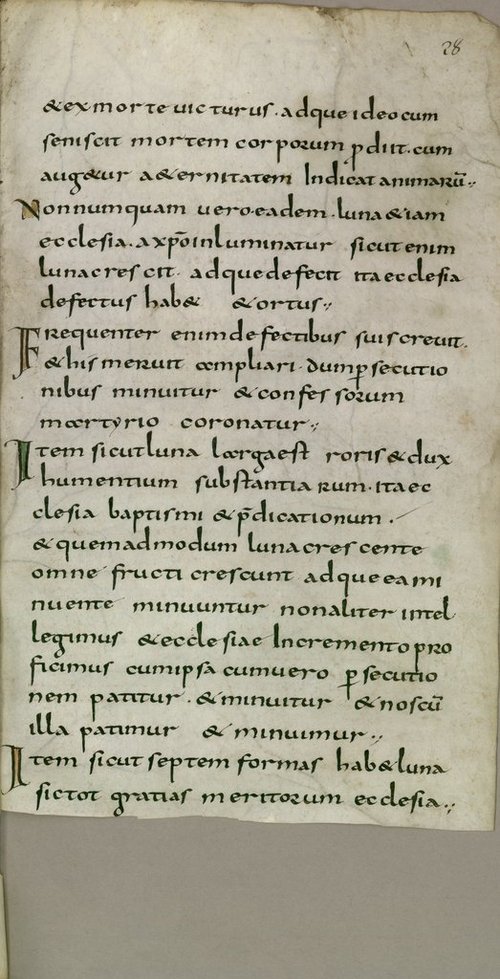 28
& ex morte uicturus. adque ideo cum
seniscit mortem corporum p̄diit. cum
aug&ur a&ernitatem Indicat animarū.
Non numquam uero eadem. luna & iam
ecclesia. a xp̄o inluminatur sicut enim
luna crescit. adque defecit ita ecclesia
defectus hab& & ortus.
Frequenter enim defectibus suis creuit.
& his meruit ampliari. dum p̱secutio
nibus minuitur & confessorum
martyrio coronatur.
Item sicut luna larga est roris & dux
humentium substantiarum. ita ec
clesia baptismi & p̄dicationum.
& quemadmodum luna crescente
omne fructi crescunt adque ea mi
nuente minuuntur non aliter intel
legimus & ecclesiae Incremento pro
ficimus cum ipsa cum uero p̱secutio
nem patitur. & minuitur & nos cū
illa patimur & minuimur.
Item sicut septem formas hab& luna
sic tot gratias meritorum ecclesia.